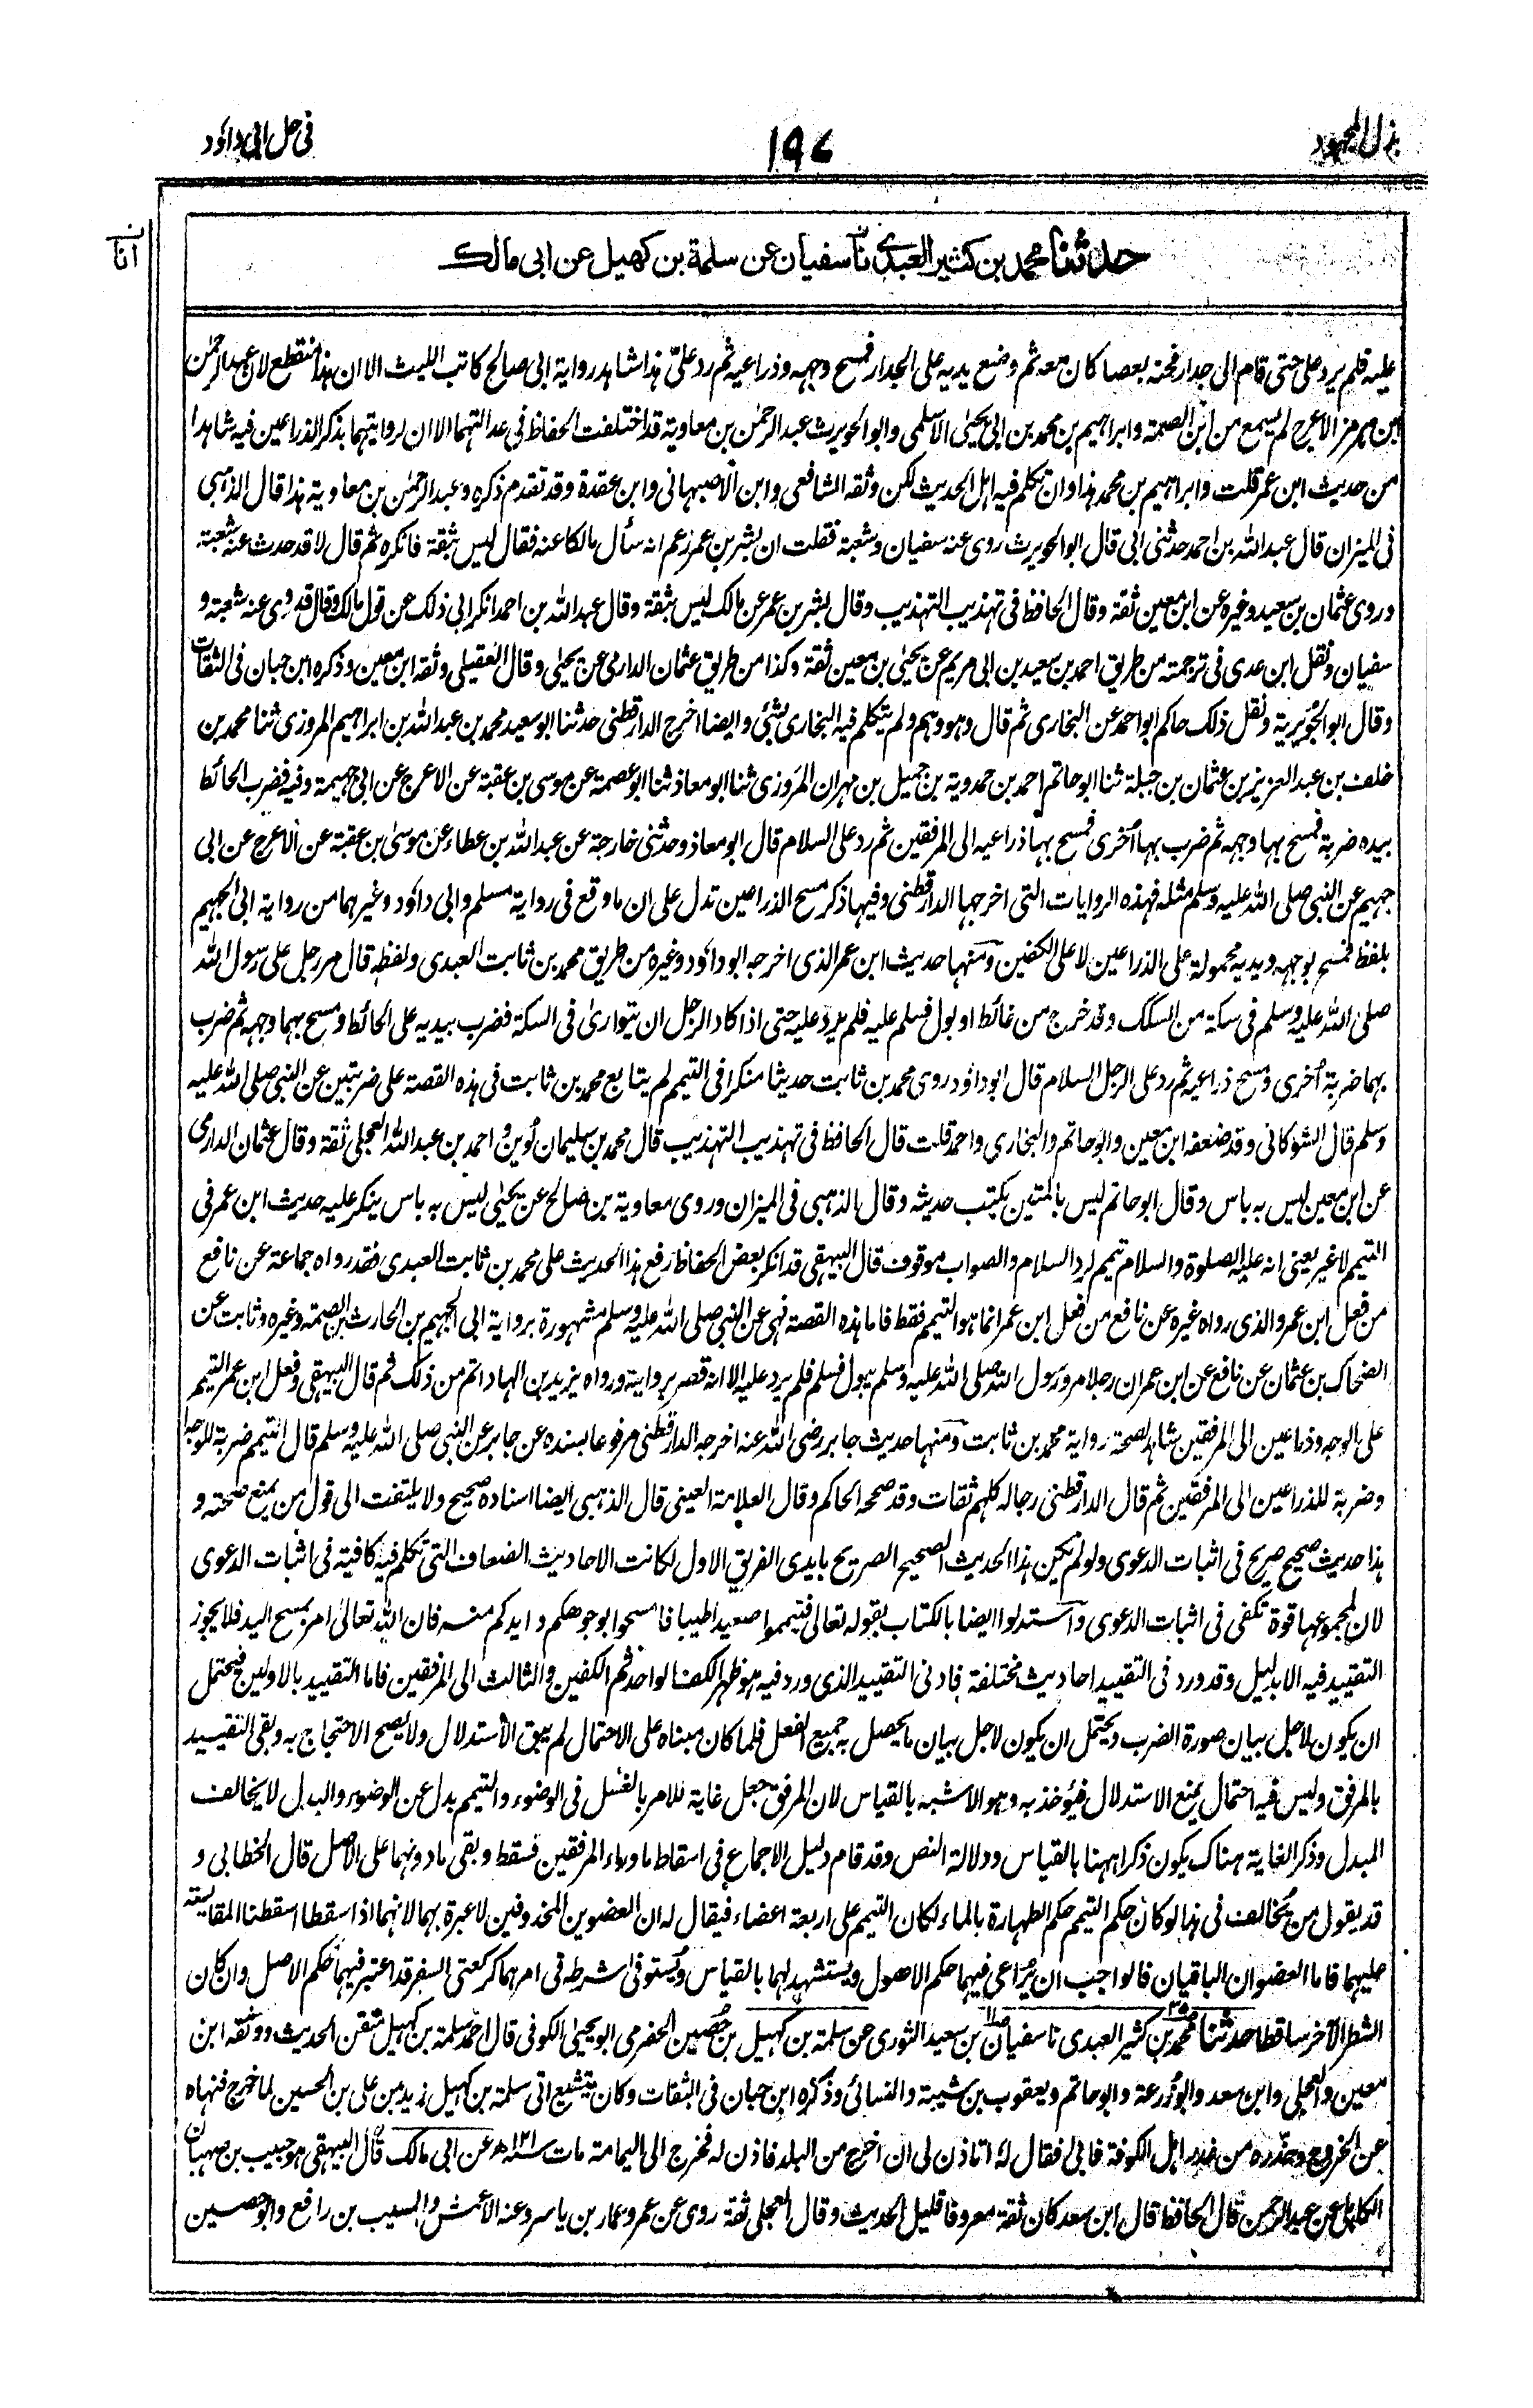 بذل المجهود
١٩٧
في حل ابي داؤد
انا
حدثنا محمد بن كثير العبدي نا سفيان عن سلمة بن كهيل عن ابي مالك
عليه فلم يرد علي حتى قام الى جدار فحته بعصا كان معه ثم وضع يديه على الجدار فمسح وجهه وذراعيه ثم رد عليّ هذا شاهد رواية ابي صالح كاتب الليث الا ان هذا منقطع لان عبد الرحمٰن
بن هرمز الاعرج لم يسمع من ابن الصمة وابراهيم بن محمد بن ابي يحيىٰ الاسلمي وابو الحويرث عبد الرحمٰن بن معاوية قد اختلفت الحفاظ في عدالتهما الا ان لروايتهما بذكر الذراعين فيه شاهدا
من حديث ابن عمر قلت وابراهيم بن محمد هذا وان تكلم فيه اهل الحديث لكن وثقه الشافعي وابن الاصبهاني وابن عقدة وقد تقدم ذكره وعبد الرحمٰن بن معاوية هذا قال الذهبي
في الميزان قال عبد الله بن احمد حدثني ابي قال ابو الحويرث روى عنه سفيان وشعبة فقلت ان بشر بن عمر زعم انه سأل مالكا عنه فقال ليس بثقة فانكره ثم قال لا قد حدث عنه شعبة
وروى عثمان بن سعيد وغيره عن ابن معين ثقة وقال الحافظ في تهذيب التهذيب وقال بشر بن عمر عن مالك ليس بثقة وقال عبد الله بن احمد انكر ابي ذلك من قول مالك وقال قد روى عنه شعبة و
سفيان ونقل ابن عدي في ترجمته من طريق احمد بن سعيد بن ابي مريم عن يحيىٰ بن معين ثقة وكذا من طريق عثمان الدارمي عن يحيىٰ وقال العقيلي وثقه ابن معين وذكره ابن حبان في الثقات
وقال ابو الجويرية ونقل ذلك حاكم ابو احمد عن البخاري ثم قال وهو وهم ولم يتكلم فيه البخاري بشئ وايضا اخرج الدارقطني حدثنا ابو سعيد محمد بن عبد الله بن ابراهيم المروزي ثنا محمد بن
خلف بن عبد العزيز بن عثمان بن جبلة ثنا ابو حاتم احمد بن حمدوية بن جميل بن مهران المروزي ثنا ابو معاذ ثنا ابو عصمة عن موسى بن عقبة عن الاعرج عن ابي جهيمة وفيه فضرب الحائط
بيده ضربة فمسح بها وجهه ثم ضرب بها أخرى فمسح بها ذراعيه الى المرفقين ثم رد علي السلام قال ابو معاذ وحدثني خارجة عن عبد الله بن عطاء عن موسىٰ بن عقبة عن الاعرج عن ابي
جهيم عن النبي صلى الله عليه وسلم مثله فهذه الروايات التي اخرجها الدارقطني وفيها ذكر مسح الذراعين تدل على ان ما وقع في رواية مسلم وابي داؤد وغيرهما من رواية ابي الجهيم
بلفظ فمسح بوجهه ويديه محمولة على الذراعين لا على الكفين ومنها حديث ابن عمر الذي اخرجه ابو داؤد وغيره من طريق محمد بن ثابت العبدي ولفظه قال مر رجل على رسول الله
صلى الله عليه وسلم في سكة من السكك وقد خرج من غائط او بول فسلم عليه فلم يرد عليه حتى اذا كاد الرجل ان يتوارىٰ في السكة فضرب بيديه على الحائط ومسح بهما وجهه ثم ضرب
بهما ضربة أخرى ومسح ذراعيه ثم رد على الرجل السلام قال ابو داؤد روى محمد بن ثابت حديثا منكرا في التيمم لم يتابع محمد بن ثابت في هذه القصة على ضربتين عن النبي صلى الله عليه
وسلم قال الشوكاني وقد ضعفه ابن معين وابو حاتم والبخاري واحمد قلت قال الحافظ في تهذيب التهذيب قال محمد بن سليمان لوين و احمد بن عبد الله العجلي ثقة وقال عثمان الدارمي
عن ابن معين ليس به باس وقال ابو حاتم ليس بالمتين يكتب حديثه وقال الذهبي في الميزان وروى معاوية بن صالح عن يحيىٰ ليس به باس ينكر عليه حديث ابن عمر في
التيمم لا غير يعني انه عليه الصلوة والسلام تيمم لرد السلام والصواب موقوف قال البيهقي قد انكر بعض الحفاظ رفع هذا الحديث على محمد بن ثابت العبدي فقد رواه جماعة عن نافع
من فعل ابن عمر والذي رواه غيره عن نافع من فعل ابن عمر انما هو التيمم فقط فاما هذه القصة فهي عن النبي صلى الله عليه وسلم مشهورة برواية ابي الجهيم بن الحارث بن الصمة وغيره وثابت عن
الضحاك بن عثمان عن نافع عن ابن عمر ان رجلا مر ورسول الله صلى الله عليه وسلم يبول فسلم فلم يرد عليه الا انه قصر بروايته ورواه يزيد بن الهاد اتم من ذلك ثم قال البيهقي وفعل ابن عمر التيمم
على الوجه وذراعين الى المرفقين شاهد لصحة رواية محمد بن ثابت ومنها حديث جابر رضي الله عنه اخرجه الدارقطني مرفوعا بسنده عن جابر عن النبي صلى الله عليه وسلم قال التيمم ضربة للوجه
وضربة للذراعين الى المرفقين ثم قال الدارقطني رجاله كلهم ثقات وقد صححه الحاكم وقال العلامة العيني قال الذهبي ايضا اسناده صحيح ولا يلتفت الى قول من يمنع صحته و
هذا حديث صحيح صريح في اثبات الدعوى ولو لم يكن هذا الحديث الصحيح الصريح بايدي الفريق الاول لكانت الاحاديث الضعاف التي تكلم فيه كافية في اثبات الدعوى
لان لمجموعها قوة تكفي في اثبات الدعوى واستدلوا ايضا بالكتاب بقوله تعالى فتيمموا صعيدا طيبا فامسحوا بوجوهكم وايديكم منه فان الله تعالىٰ امر بمسح اليد فلا يجوز
التقييد فيه الا بدليل وقد ورد في التقييد احاديث مختلفة فادنى التقييد الذي ورد فيه هو ظهر الكف الواحد ثم الكفين والثالث الى المرفقين فاما التقييد بالاولين فيحتمل
ان يكون لاجل بيان صورة الضرب ويحتمل ان يكون لاجل بيان ما يحصل به جميع الفعل فلما كان مبناه على الاحتمال لم يبق الاستدلال ولا يصح الاحتجاج به وبقي التقييد
بالمرفق وليس فيه احتمال يمنع الاستدلال فيؤخذ به وهو الاشبه بالقياس لان المرفق جعل غاية للامر بالغسل في الوضوء والتيمم بدل عن الوضوء والبدل لا يخالف
المبدل وذكر الغاية هناك يكون ذكرا ههنا بالقياس ودلالة النص وقد قام دليل الاجماع في اسقاط ما وراء المرفقين فسقط وبقي ما دونهما على الاصل قال الخطابي و
قد يقول من يخالف في هذا لو كان حكم التيمم حكم الطهارة بالماء لكان التيمم على اربعة اعضاء فيقال له ان العضوين المحذوفين لا عبرة بهما لانهما اذا سقطا اسقطنا المقايسة
عليهما فاما العضوان الباقيان فالواجب ان يراعى فيهما حكم الاصول ويستشهد لهما بالقياس ويستوفى شرطه في امرهما كركعتي السفر قد اعتبر فيهما حكم الاصل وان كان
الشطر الآخر ساقطا حدثنا محمد بن كثير العبدي نا سفيان بن سعيد الثوري عن سلمة بن كهيل بن حصين الحضرمي ابو يحيىٰ الكوفي قال احمد سلمة بن كهيل متقن الحديث ووثقه ابن
معين والعجلي وابن سعد وابو زرعة وابو حاتم ويعقوب بن شيبة والنسائي وذكره ابن حبان في الثقات وكان يتشيع اتى سلمة بن كهيل زيد بن علي بن الحسين لما خرج فنهاه
عن الخروج وحذره من غدر اهل الكوفة فابى فقال له اتاذن لي ان اخرج من البلد فاذن له فخرج الى اليمامة مات سنه ١٢١ ھ عن ابي مالك قال البيهقي هو حبيب بن صهبان
الكاهلي عن عبد الرحمن قال الحافظ قال ابن سعد كان ثقة معروفا قليل الحديث وقال العجلي ثقة روى عن عمر وعمار بن ياسر وعنه الاعمش والمسيب بن رافع وابو حصين